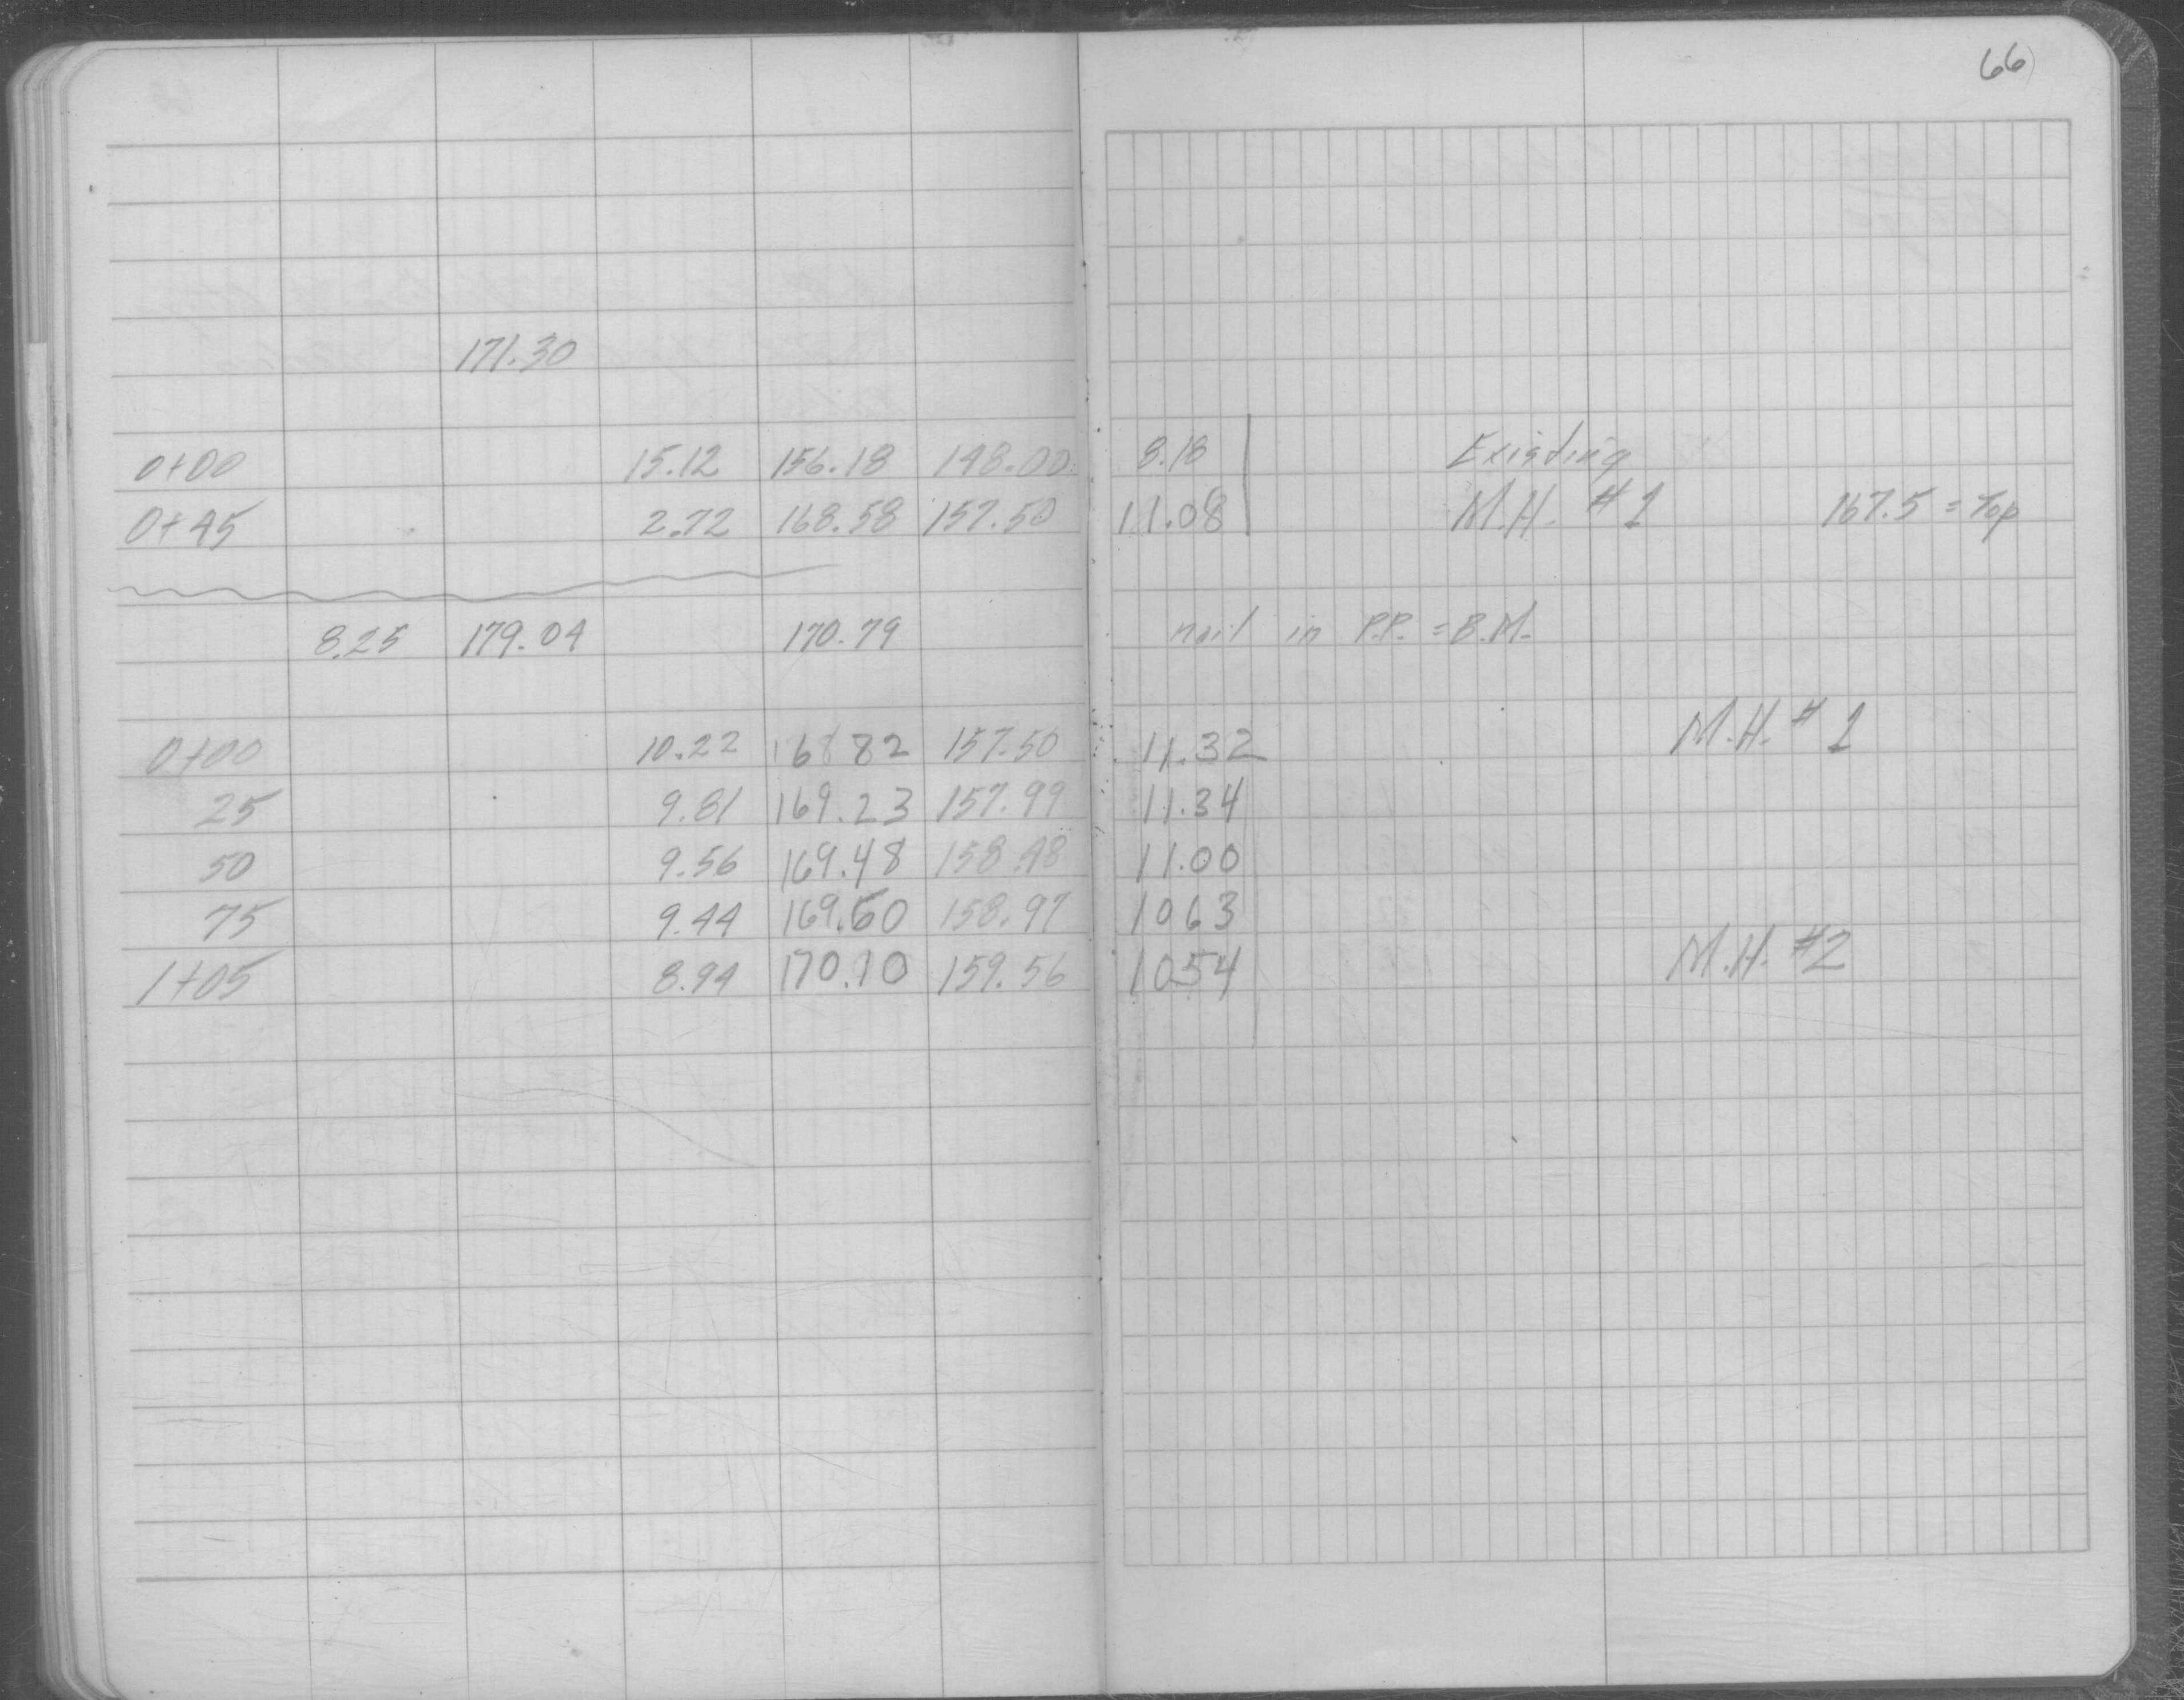 66
171.30
0+00 15.12 156.18 148.00 8.18 Existing
0+45 2.72 168.58 157.50 11.08 M.H. #1 167.5 = Top
8.25 179.04 170.79 nail in P.P. = B.M.
M.H. #1
0+00 10.22 168 82 157.50 11.32
25 9.81 169.23 157.99 11.34
50 9.56 169.48 158.48 11.00
75 9.44 169.60 158.97 10 63
1+05 8.94 170.10 159.56 10.54 M.H. #2